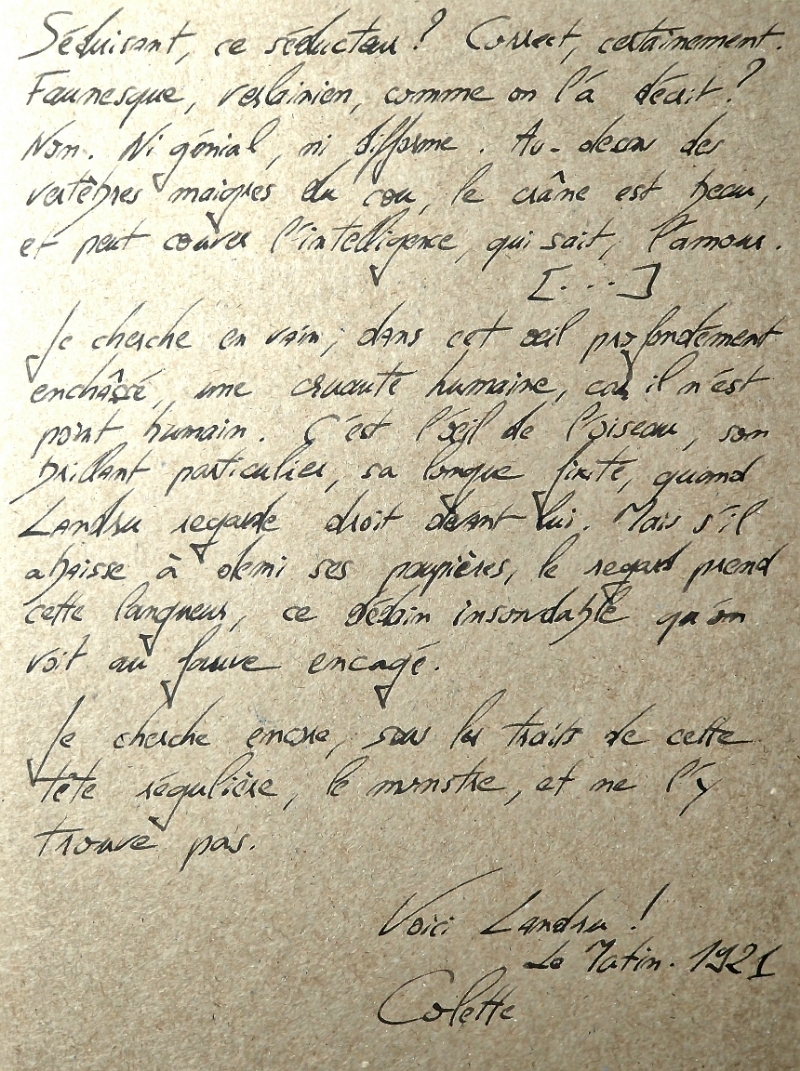 Séduisant, ce séducteur ? Correct, certainement.
Faunesque, verlainien, comme on l'a décrit ?
Non. Ni génial, ni difforme. Au-dessus des
vertèbres maigres du cou, le crâne est beau,
et peut couver l'intelligence, qui sait, l'amour.
[...]
Je cherche en vain, dans cet œil profondément
enchâssé, une cruauté humaine, car il n'est
point humain. C'est l'œil de l'oiseau, son
brillant particulier, sa longue fixité, quand
Landru regarde droit devant lui. Mais s'il
abaisse à demi ses paupières, le regard prend
cette langueur, ce dédain insondable qu'on
voit au fauve encagé.
Je cherche encore, sous les traits de cette
tête régulière, le monstre, et ne l'y
trouve pas.
Voici Landru !
Le Matin. 1921
Colette